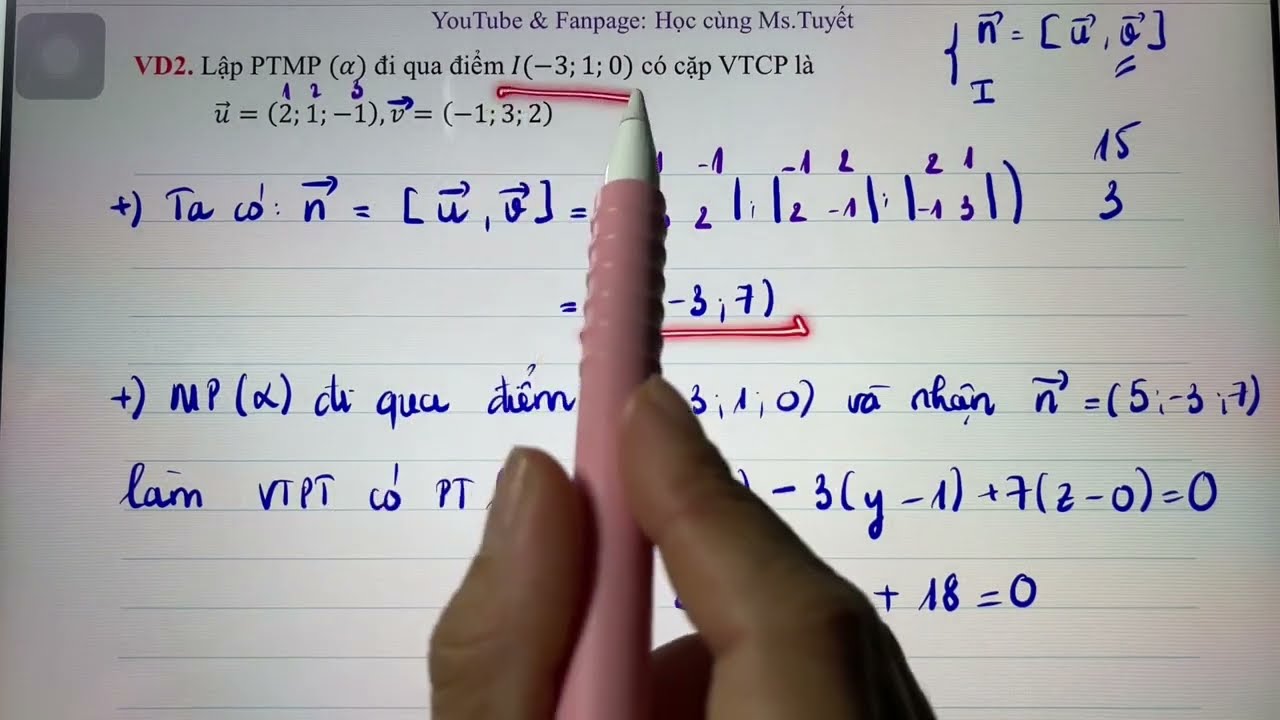 YouTube & Fanpage: Học cùng Ms.Tuyết
VD2. Lập PTMP (α) đi qua điểm I(−3; 1; 0) có cặp VTCP là
1 2 3
u⃗ = (2; 1; −1), v⃗ = (−1; 3; 2)
{ n⃗ = [u⃗, v⃗]
I
+) Ta có: n⃗ = [u⃗, v⃗] = -1 2 |; | -1 2 2 -1 |; | 2 1 -1 3 |)
15
3
= -3; 7)
+) MP (α) đi qua điểm 3; 1; 0) và nhận n⃗ = (5; -3; 7)
làm VTPT có PT ) - 3(y - 1) + 7(z - 0) = 0
+ 18 = 0